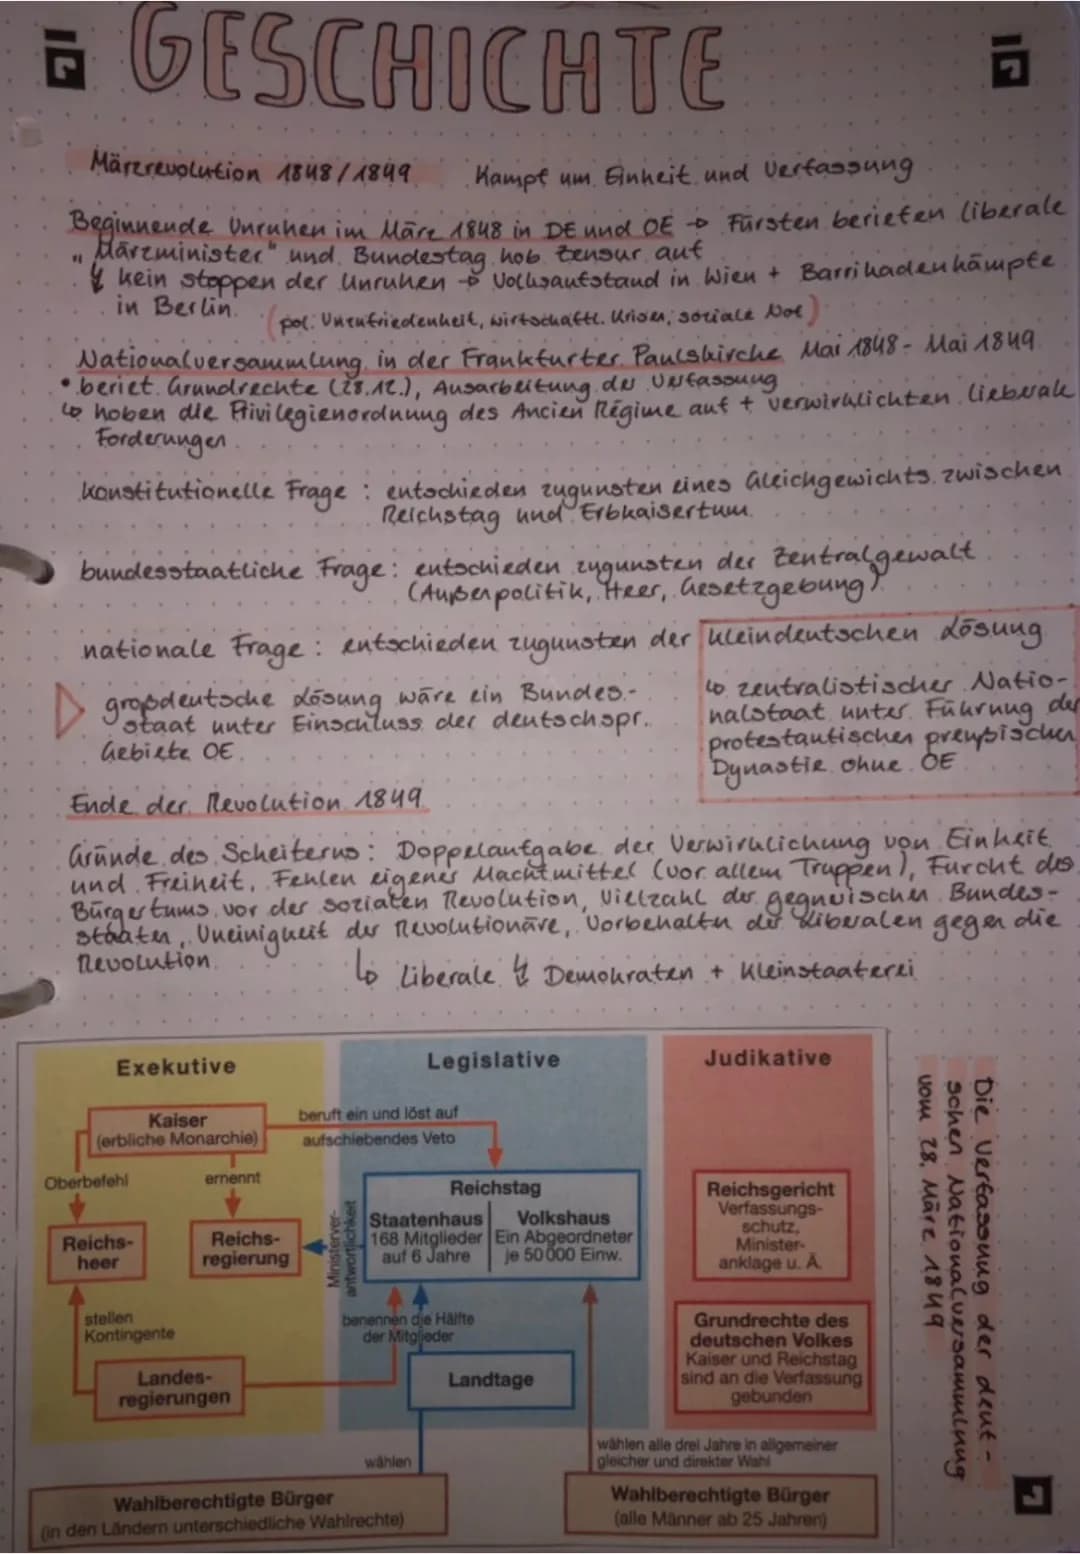 GESCHICHTE
Märzrevolution 1848/1849 Kampf um Einheit und Verfassung
Beginnende Unruhen im März 1848 in DE und OE → Fürsten berieten liberale
„Märzminister" und Bundestag hob Zensur auf
↯ kein stoppen der Unruhen → Volksaufstand in Wien + Barrikadenkämpfe
in Berlin. (pol. Unzufriedenheit, wirtschaftl. Krisen, soziale Not)
Nationalversammlung in der Frankfurter Paulskirche Mai 1848 - Mai 1849
• beriet Grundrechte (28.12.), Ausarbeitung der Verfassung
↳ hoben die Privilegienordnung des Ancien Régime auf + verwirklichten lieberale
Forderungen
konstitutionelle Frage : entschieden zugunsten eines Gleichgewichts zwischen
Reichstag und Erbkaisertum
bundesstaatliche Frage : entschieden zugunsten der Zentralgewalt
(Außenpolitik, Heer, Gesetzgebung)
nationale Frage : entschieden zugunsten der kleindeutschen Lösung
großdeutsche Lösung wäre ein Bundes-
staat unter Einschluss der deutschspr.
Gebiete OE.
↳ zentralistischer Natio-
nalstaat unter Führung der
protestantischen preußischen
Dynastie ohne OE
Ende der Revolution 1849
Gründe des Scheiterns : Doppelaufgabe der Verwirklichung von Einheit
und Freiheit, Fehlen eigener Machtmittel (vor allem Truppen), Furcht des
Bürgertums vor der sozialen Revolution, Vielzahl der gegnerischen Bundes-
staaten, Uneinigkeit der Revolutionäre, Vorbehalte der Liberalen gegen die
Revolution
↳ Liberale ↯ Demokraten + Kleinstaaterei
Exekutive
Legislative
Judikative
Kaiser
(erbliche Monarchie)
beruft ein und löst auf
aufschiebendes Veto
Oberbefehl
ernennt
Reichs-
heer
Reichs-
regierung
Ministerver-
antwortlichkeit
Reichstag
Staatenhaus
168 Mitglieder
auf 6 Jahre
Volkshaus
Ein Abgeordneter
je 50 000 Einw.
Reichsgericht
Verfassungs-
schutz,
Minister-
anklage u. Ä.
stellen
Kontingente
benennen die Hälfte
der Mitglieder
Grundrechte des
deutschen Volkes
Kaiser und Reichstag
sind an die Verfassung
gebunden
Landes-
regierungen
Landtage
wählen
wählen alle drei Jahre in allgemeiner
gleicher und direkter Wahl
Wahlberechtigte Bürger
(in den Ländern unterschiedliche Wahlrechte)
Wahlberechtigte Bürger
(alle Männer ab 25 Jahren)
Die Verfassung der deut-
schen Nationalversammlung
vom 28. März 1849